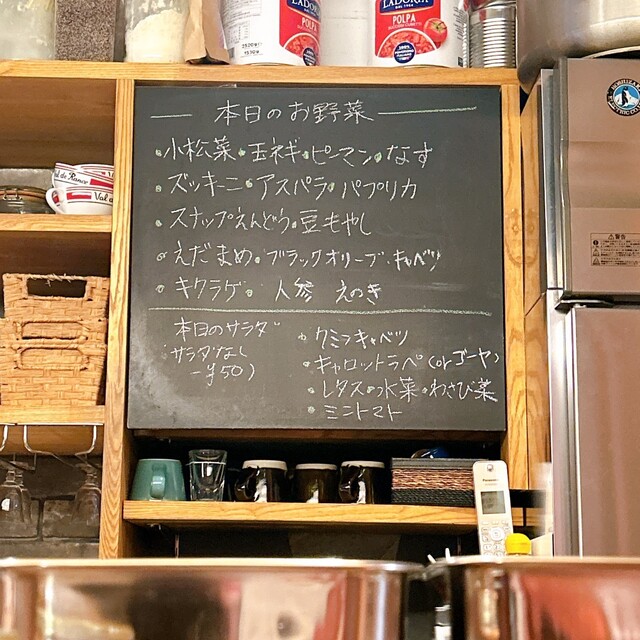 LADORIA
POLPA
LADORIA
POLPA
本日のお野菜
小松菜・玉ネギ・ピーマン・なす
・ズッキーニ・アスパラ・パプリカ
・スナップえんどう・豆もやし
・えだまめ・ブラックオリーブ・キャベツ
・キクラゲ・人参 えのき
本日のサラダ
サラダなし
-¥50)
・クミンキャベツ
・キャロットラペ(orゴーヤ)
・レタス・水菜・わさび菜
・ミニトマト
警告
Panasonic